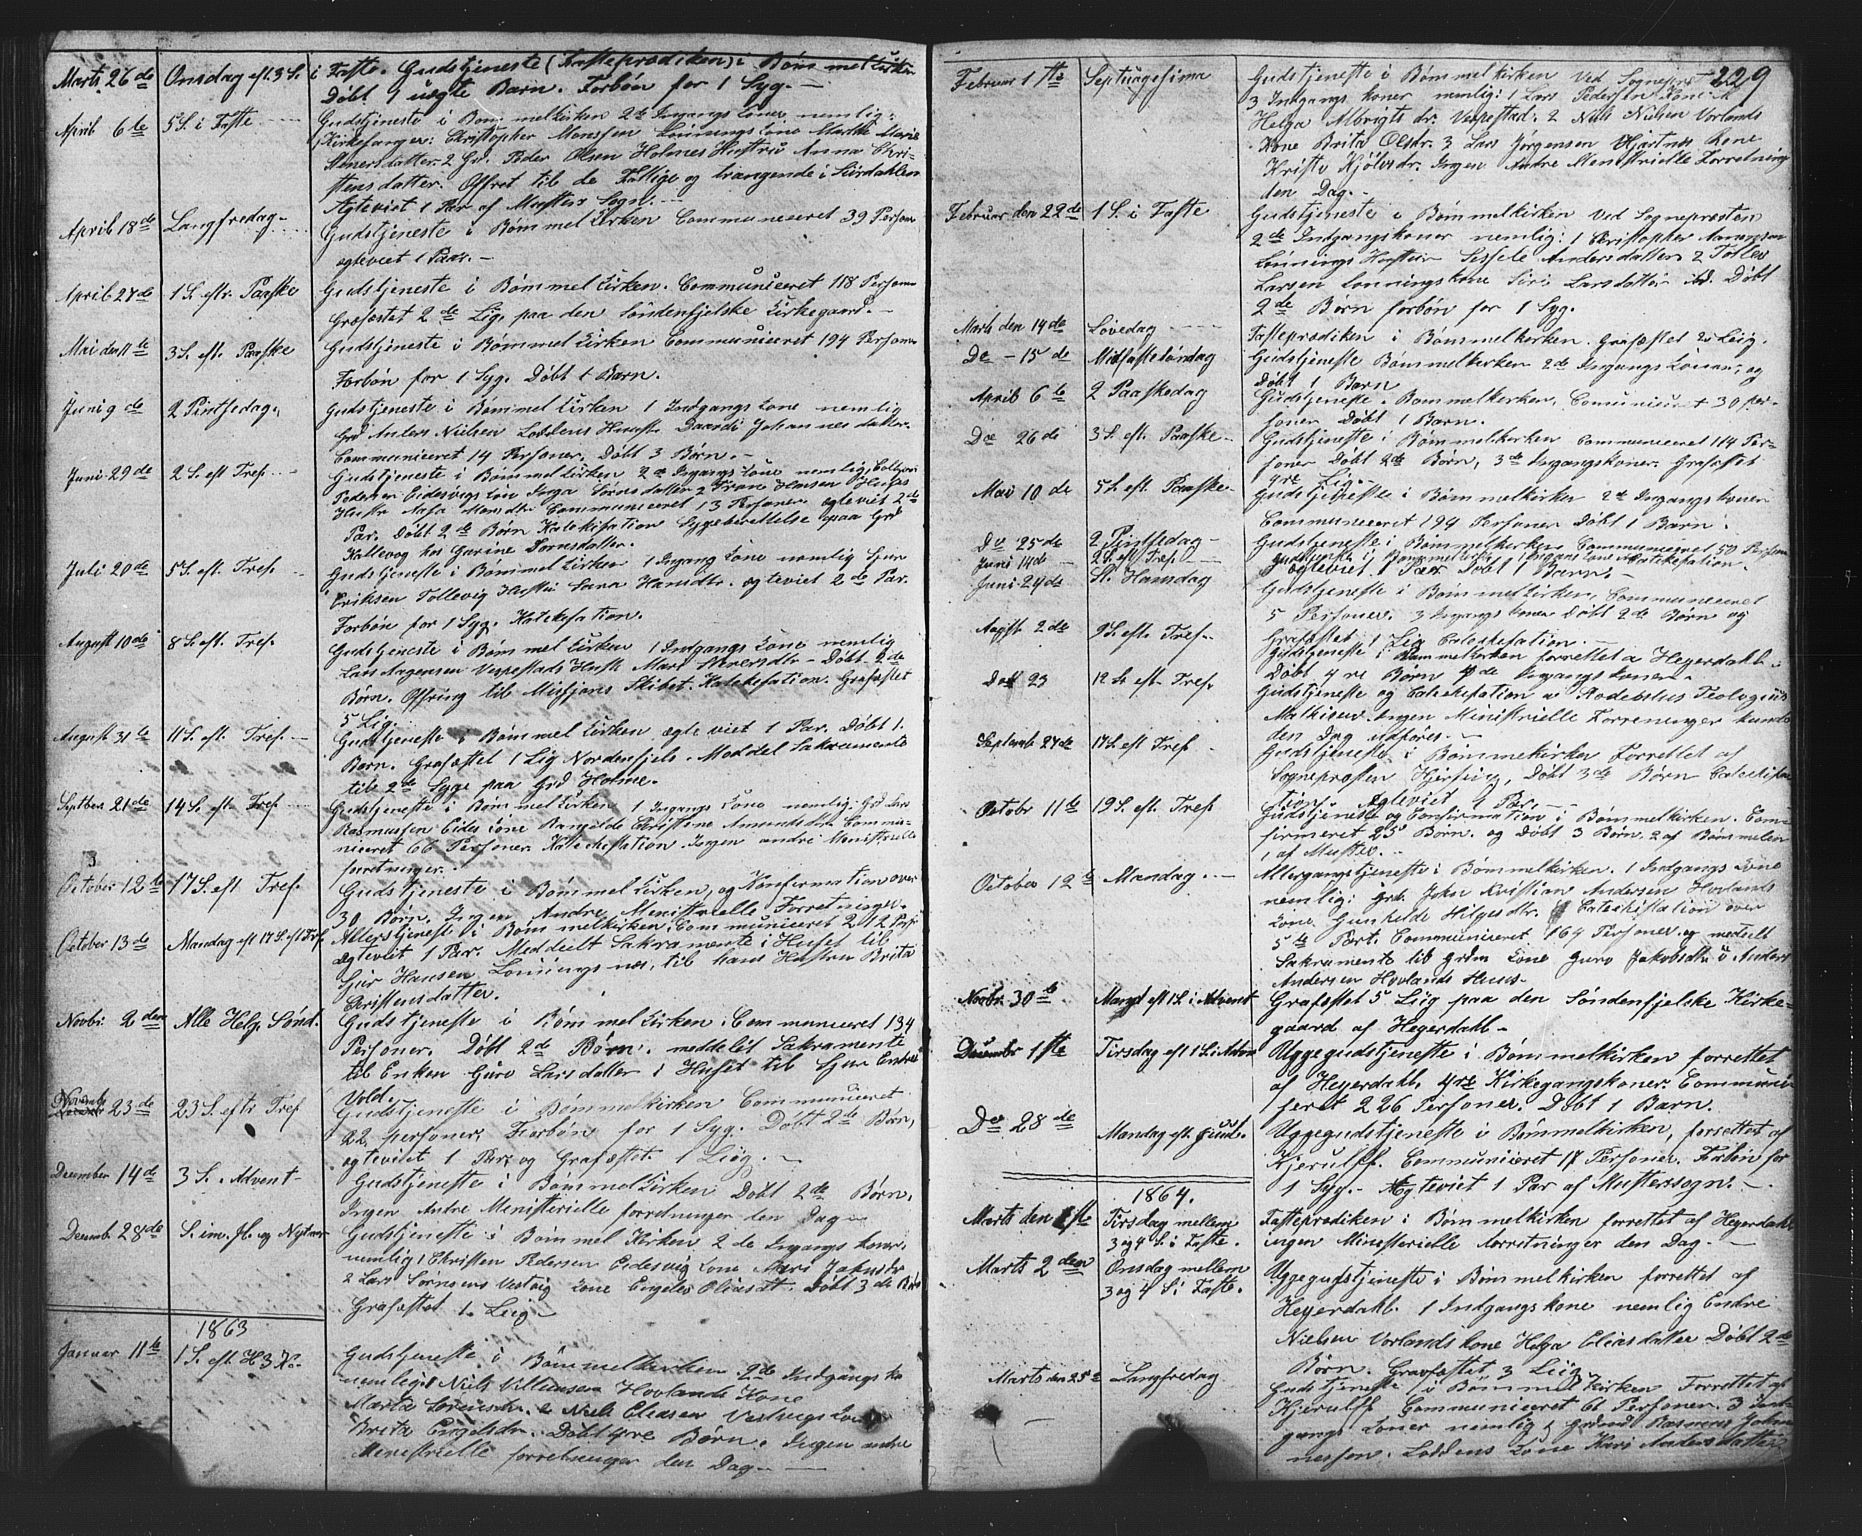 Marts 26de Onsdag eft. 3 S. i Faste. Gudstjeneste (Fasteprædiken) i Bømmelkirken
Døbt 1 uægte Barn. Forbøn for 1 Syg. —
April 6te 5 S. i Faste Gudstjeneste i Bømmelkirken 2de Ingangskoner nemlig:
1 Kirkesanger: Christopher Monssen Lønnings Kone Marthe Marie
Stonersdatter. 2 Grd. Peder Olsen Holmes Hustru Anna Chri-
stensdatter. Offret til de Fattige og trængende i Sirdahlen
Ægteviet 1 Par af Mosters Sogn. —
April 18de Langfredag. Gudstjeneste i Bømmelkirken Communiceret 39 Person
ægteviet 1 Paar. —
April 27de 1 S. eftr. Paaske Gudstjeneste i Bømmelkirken. Communiceret 118 Persone
Græfæstet 2de Lig paa den søndenfjelske Kirkegaard. —
Mai den 11te 3 S. eft. Paaske Gudstjeneste i Bømmelkirken Communiceret 194 Persone
Forbøn for 1 Syg. Døbt 1 Barn.
Juni 9de 2 Pintsedag Gudstjeneste i Bømmelkirken 1 Indgangskone nemlig
Grd Anders Nielsen Loddens Hustr. Daardi Johannesdatter.
Communiceret 14 Persorer. Døbt 3 Børn. —
Juni 29de 2 S. eft Tref. Gudstjeneste i Bømmelkirken 2de Ingangskone nemlig
Pedersen Eidesvigs Kone Inga
Hustr Communiceret 13 Personer ægteviet 2de
Par. Døbt 2de Børn Katekisation Sygeberettelse paa Grd
Kallevog hos Gurine Tørresdatter.
Juli 20de 5 S. eft. Tref. Gudstjeneste i Bømmelkirken 1 Ingangkone nemlig Sjur
Eriksen Tollevig Hustru Sana Hansdtr. ægteviet 2de Par.
Forbøn for 1 Syg. Katekesation.
August 10de 8 S. eft Tref. Gudstjeneste i Bømmelkirken 1 Indgangskone nemlig
Lars Aagensen Vespestads Hustr Mari Døbt 2de
Børn. Offring til Misjons Skibet. Katekesation. Græfæstet
5 Lig.
August 31te 11 S. eft. Tref. — Gudstjeneste i Bømmelkirken ægteviet 1 Par. Døbt 1.
Barn. Græfæstet 1 Lig Nordenfjels. Meddel Sakramente
til 2de Syge paa Grd Holme.
Septbr 21de 14 S. eft Tref Gudstjeneste i Bømmelkirken 1 Ingangs Kone nemlig: Grd Lars
Rasmussen Eides Kone Rangilde Christine Amundsdtr Commu-
niceret 66 Personer Katechesation. Ingen andre Ministrielle
forretninger.
October 12te 17 S. eft Tref. Gudstjeneste i Bømmelkirken, og Konfermation over
30 Børn. Ingen Andre Ministrielle Forretninger.
October 13de Mandag eft 17 S. eft Tref. Alterstjeneste i Bømmelkirken, Communiceret 212 Pers
ægteviet 1 Par. Meddeilt Sakramente i Huset til
Sjur Hansen Lønningsnes, til hans Hustru Brita
Christensdatter.
Novbr 2den Alle Helg. Sønd. Gudstjeneste i Bømmelkirken. Communiceret 134
Personer. Døbt 2de Børn. meddelit Sakramente
til Enken Guro Larsdatter i Huset til Sjur Endre
Vold.
Novembr 23de 23 S. eftr Tref Gudstjeneste i Bømmelkirken Communiceret
22 personer. Forbøn for 1 Syg. Døbt 2de Børn,
ægteviet 1 Par, og Græfæstet 1 Liig. —
December 14de 3 S. i Advent Gudstjeneste i Bømmelkirken Døbt 2de Børn.
Ingen Andre Ministerielle forretninger den Dag —
Decemb. 28de S. im. Jl. og Nytaar Gudstjeneste i Bømmelkirken 2de Ingangs koner
nemlig 1 Christen Pedersen Eidesvig Kone Mari
2 Lars Sørnsens Vestvig Kone Engelev Oliasdt. Døbt 3de Børn
Græfæstet 1. Liig —
1863
Januar 11te 1 S. eft. H 3 K. Gudstjeneste i Bømmelkirken 2de Indgangs ko
nemlig 1 Niels Villumsen Hovlands Kone
Marta 2 Niels Eliasen Vestvigs Kone
Brita Engelsdr. Døbt 4re Børn. Ingen andre
Ministrielle forretninger den Dag —
229
Februar 1ste Septuagesima Gudstjeneste i Bømmelkirken Ved Sognepræst
3 Indgangs koner nemlig: 1 Lars Pedersen Kone
Helga Albrigts dr. Vespestad. 2 Niels Nielsen Vorlands
Kone Brita Olsdr. 3 Lars Jørgensen Hjartnes Kone
Kristi Kjølvsdr. Ingen Andre Menistrielle Forretning
den Dag. —
Februar den 22de 1 S. i Faste Gudstjeneste i Bømmelkirken Ved Sognepræsten
2de Indgangskoner nemlig: 1 Christopher
Lønnings Hustru Sessele Andersdatter 2 Tollev
Larsen Lønningskone Siri Larsdatter Døbt
2de Børn forbøn for 1 Syg.
Marts den 14de Løvedag Fasteprædiken i Bømmelkirken. Græfæstet 2 Liig.
Do — 15de Midfastesøndag Gudstjeneste Bømmelkirken 2de Ingangs Koner, og
Døbt 1 Barn
April 6te 2 Paaskedag Gudstjeneste i Bømmelkirken, Comuniceret 30 Per-
soner Døbt 1 Barn.
Do 26de 3 S. eft. Paaske Gudstjeneste i Bømmelkirken Communiceret 114 Per-
soner Døbt 2de Børn, 3de Ingangskoner. Græfæstet
4re Lig.
Mai 10de 5 S. eft. Paaske Gudstjeneste i Bømmelkirken 2de Ingangs koner
Communiceret 194 Personer Døbt 1 Barn.
Do 25de 2 Pintsedag Gudstjeneste i Bømmelkirken Communiceret 50 Persone
Juni 14de 2 S. eft Tref. Gudstjeneste i Bømmelkirken
ægteviet 1 Par Døbt 1 Barn. —
Juni 24de St. Hansdag Gudstjeneste i Bømmelkirken, Communiceret
5 Personer. 3 Ingangs koner Døbt 2de Børn og
Græfæstet 1 Lig Catekesation. —
Augst 2de 9 S. eft. Tref. Gudstjeneste i Bømmelkirken forrettet a Heyerdahl.
Døbt 4re Børn 4de Ingangs koner
Do 23 12 S. eft Tref. Gudstjeneste og Catekesation a Teologius
Mathisen. Ingen Ministrielle Forreninger kunde
den Dag udføres. —
Septemb 27de 17 S. eft Tref. Gudstjeneste i Bømmelkirken Forrettet af
Sognepræsten Døbt 3de Børn
Ægteviet 1 Par. —
Octobr 11te 19 S. eft. Tref. Gudstjeneste og Confirmation i Bømmelkirken. Con-
firmeret 25 Børn. og Døbt 3 Børn. 2 af Bømmelen
1 af Moster. —
October 12te Mandag. — Altergangstjeneste i Bømmelkirken. 1 Indgangs Kone
nemlig: Grd. John Kristian Andersen Hovlands
Kone. Gunhilde Catechisation over
5te Part. Communiceret 164 Personer og medelt
Sakramente til Kone Guro Jakobsdtr i Anders
Andersen Hovlands Huus.
Novbr. 30te Mangd eft 1 S. i Advent Græfæstet 5 Liig paa den Søndenfjelske Kirke-
gaard af Hegerdahl. —
December 1ste Tirsdag eft 1 S. i Adven Uggegudstjeneste i Bømmelkirken forrettet
af Heyerdahl. 4re Kirkegangskoner. Communi-
seret 226 Personer. Døbt 1 Barn.
Do 28de Mandag eft. Juul. Uggegudstjeneste i Bømmelkirken, forrettet af
Kjerulff. Communiceret 17 Personer. Forbøn for
1 Syg. — Ægteviet 1 Par af Mosterssogn. —
1864.
Marts den 1ste Tirsdag mellem 3 og 4 S. i Faste. Fasteprædiken i Bømmelkirken forrettet af Heyerdahl
ingen Ministerielle forretninger den Dag. —
Marts 2den Onsdag mellem 3 og 4 S. i Faste. Uggegudstjeneste i Bømmelkirken forrettet af
Heyerdahl. 1 Indgangskone nemlig Endre
Nielsen Vorlands kone Helga Eliasdatter Døbt 2de
Børn. Gravfæstet 3 Liig.
Marts den 25de Langfredag Gudstjeneste i Bømmelkirken Forrettet af
Kjerulff Communiceret 61 Personer. 3 Ind-
gangs Koner nemlig 1 Grdmd Rasmus Johan
nessen. Loddens Kone Kari Andersdatter